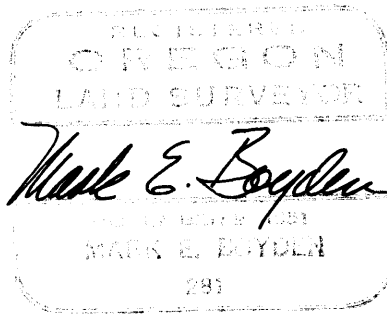 REGISTERED
OREGON
LAND SURVEYOR
Mark E. Boyden
MARK E. BOYDEN
291